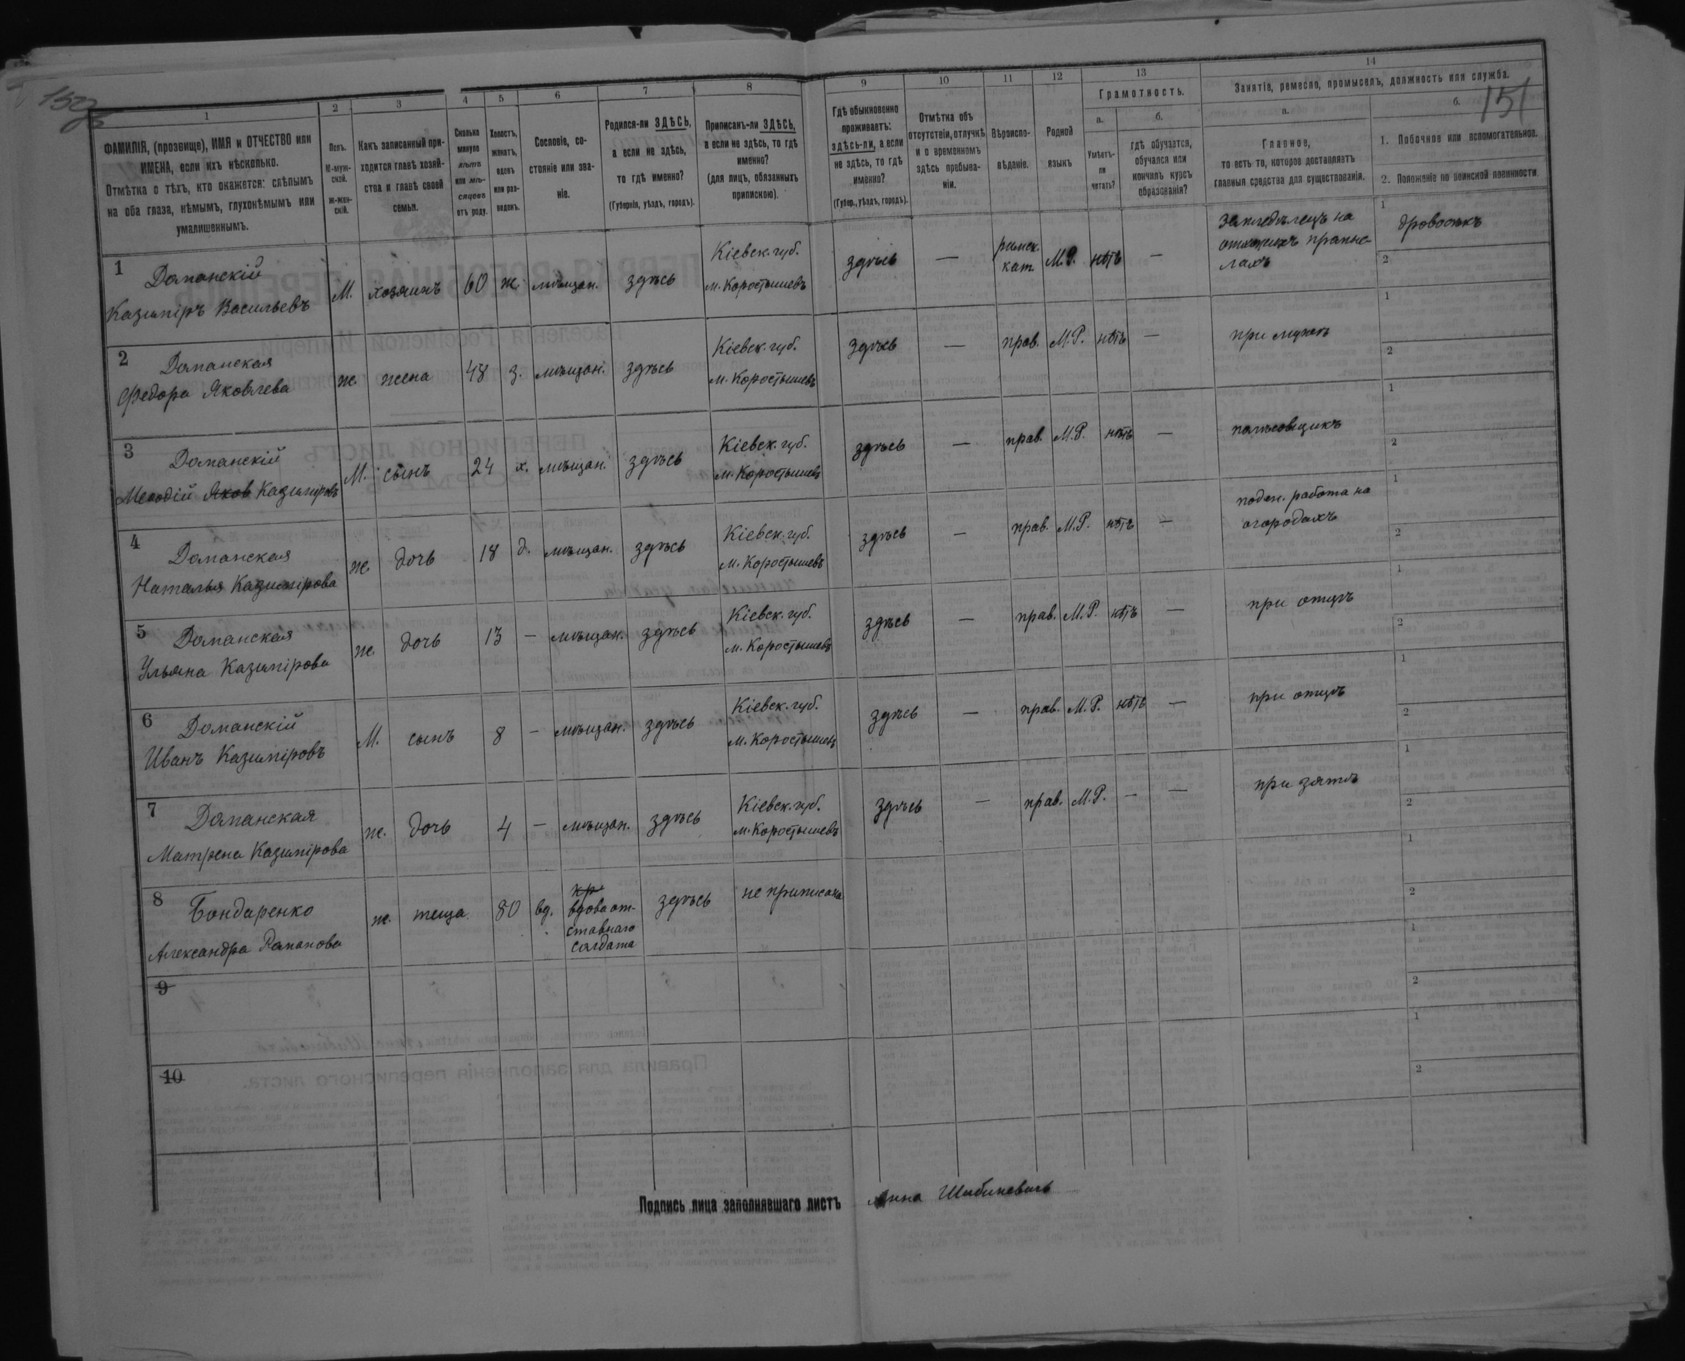 151
1
ФАМИЛІЯ, (прозвище), ИМЯ и ОТЧЕСТВО или
ИМЕНА, если ихъ нѣсколько.
Отмѣтка о тѣхъ, кто окажется: слѣпымъ
на оба глаза, нѣмымъ, глухонѣмымъ или
умалишеннымъ.
2
Полъ.
М-муж-
ской.
ж-жен-
скій.
3
Какъ записанный при-
ходится главѣ хозяй-
ства и главѣ своей
семьи.
4
Сколько
минуло
лѣтъ
или мѣ-
сяцевъ
отъ роду.
5
Холостъ,
женатъ,
вдовъ
или раз-
веденъ.
6
Сословіе, со-
стояніе или зва-
ніе.
7
Родился-ли ЗДѢСЬ,
а если не здѣсь,
то гдѣ именно?
(Губернія, уѣздъ, городъ).
8
Приписанъ-ли ЗДѢСЬ,
а если не здѣсь, то гдѣ
именно?
(для лицъ, обязанныхъ
припискою).
9
Гдѣ обыкновенно
проживаетъ:
здѣсь-ли, а если
не здѣсь, то гдѣ
именно?
(Губер., уѣздъ, городъ).
10
Отмѣтка объ
отсутствіи, отлучкѣ
и о временномъ
здѣсь пребыва-
ніи.
11
Вѣроиспо-
вѣданіе.
12
Родной
языкъ
13
Грамотность.
а.
Умѣетъ-
ли
читать?
б.
гдѣ обучается,
обучался или
кончилъ курсъ
образованія?
14
Занятія, ремесло, промыселъ, должность или служба.
а.
Главное,
то есть то, которое доставляетъ
главныя средства для существованія.
б.
1. Побочное или вспомогательное.
2. Положеніе по воинской повинности.
1 Доманскій
Казиміръ Васильевъ
М. хозяинъ 60 ж. мѣщан. здѣсь
Кіевск. губ.
м. Коростышевъ
здѣсь —
римск.
кат.
М.Р. нѣтъ —
1 дровосѣкъ
2
2 Доманская
Федора Яковлева
ж. жена 48 з. мѣщан. здѣсь
Кіевск. губ.
м. Коростышевъ
здѣсь — прав. М.Р. нѣтъ — при мужѣ
1
2
3 Доманскій
Мелодій Яков Казиміровъ
М. сынъ 24 х. мѣщан. здѣсь
Кіевск. губ.
м. Коростышевъ
здѣсь — прав. М.Р. нѣтъ —
1
2
4 Доманская
Наталья Казимірова
ж. дочь 18 д. мѣщан. здѣсь
Кіевск. губ.
м. Коростышевъ
здѣсь — прав. М.Р. нѣтъ —
поден. работа на
огородахъ
1
2
5 Доманская
Ульяна Казимірова
ж. дочь 13 — мѣщан. здѣсь
Кіевск. губ.
м. Коростышевъ
здѣсь — прав. М.Р. нѣтъ — при отцѣ
1
2
6 Доманскій
Иванъ Казиміровъ
М. сынъ 8 — мѣщан. здѣсь
Кіевск. губ.
м. Коростышевъ
здѣсь — прав. М.Р. нѣтъ — при отцѣ
1
2
7 Доманская
Матрена Казимірова
ж. дочь 4 — мѣщан. здѣсь
Кіевск. губ.
м. Коростышевъ
здѣсь — прав. М.Р. — — при зятѣ
1
2
8 Бондаренко
Александра Романова
ж. теща 80 вд.
кр
вдова от-
ставнаго
солдата
здѣсь не приписана
1
2
9
1
2
10
1
2
Подпись лица заполнявшаго листъ